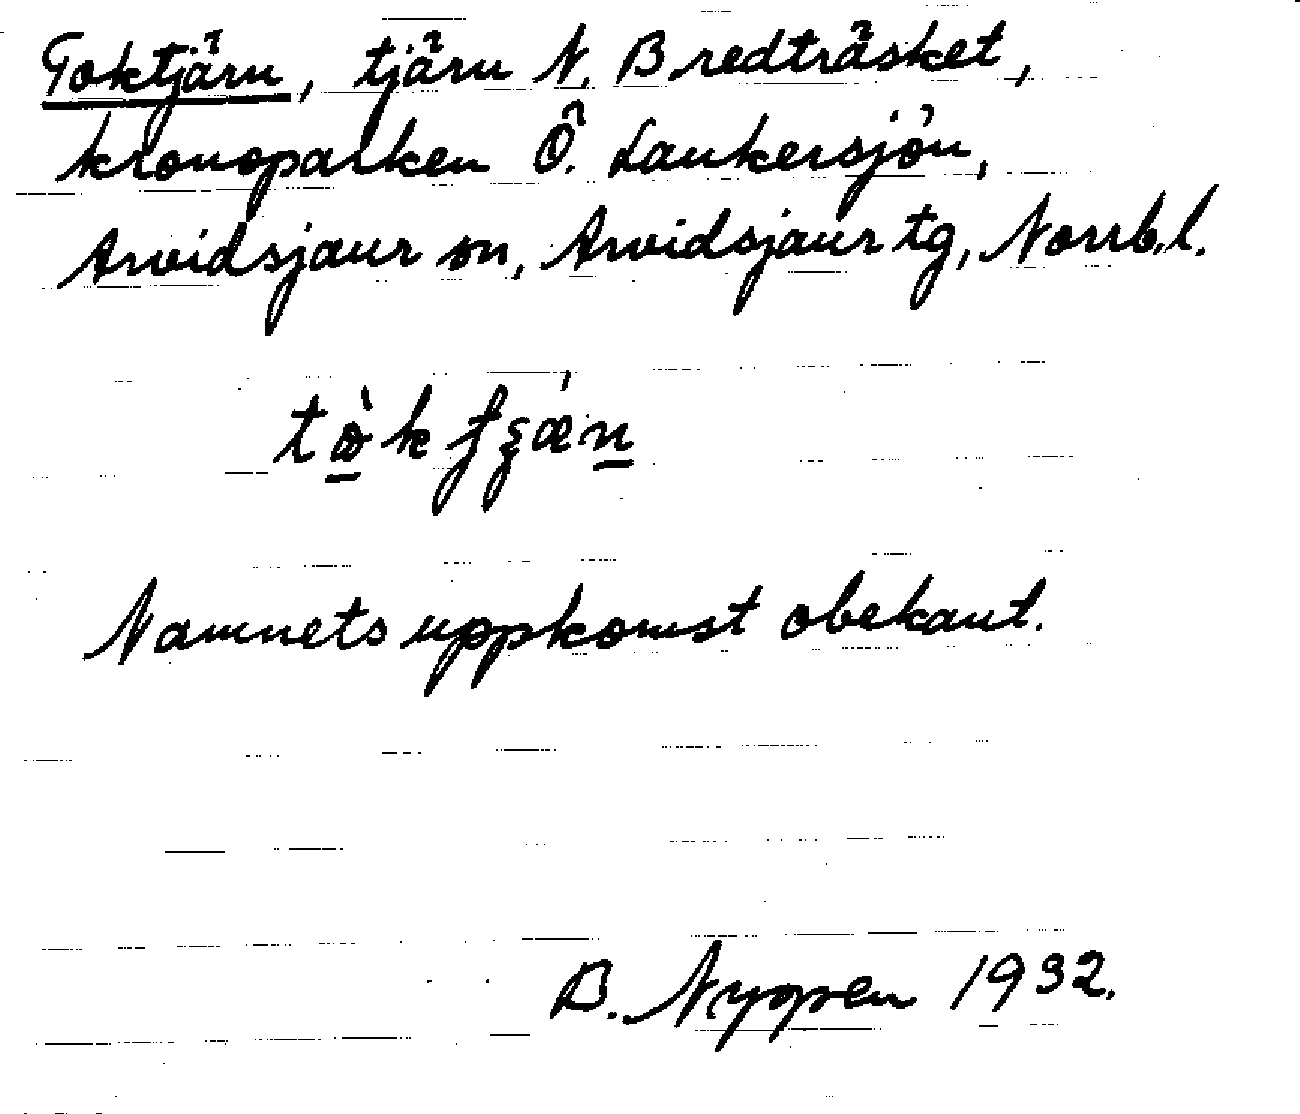 Toktjärn, tjärn N. Bredträsket,
kronoparken Ö. Laukersjön,
Arvidsjaur sn, Arvidsjaur tg, Norrb.l.
Namnets uppkomst obekant.
B. Nyopen 1932.